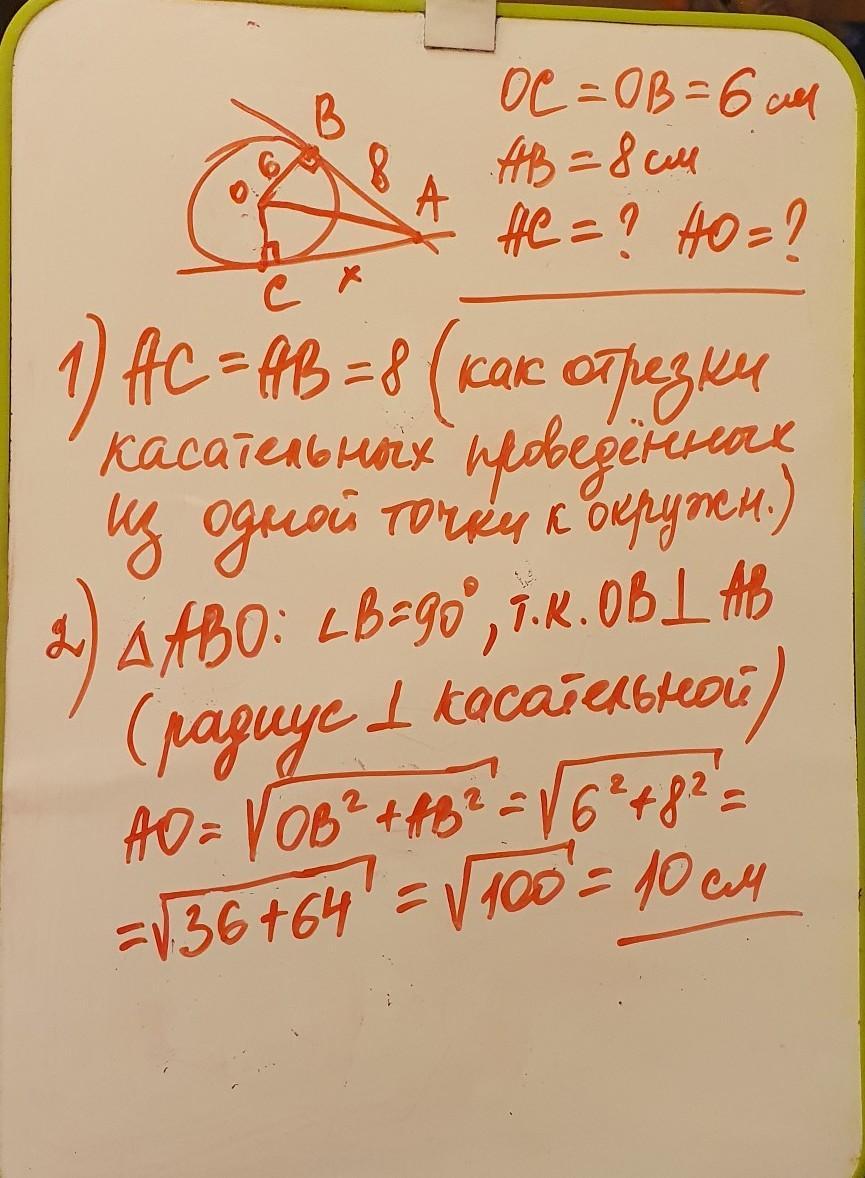 OC = OB = 6 см
AB = 8 см
AC = ? AO = ?
B
6
8
O
A
C
x
1) AC = AB = 8 (как отрезки
касательных проведённых
из одной точки к окружн.)
2) △ABO: ∠B=90°, т.к. OB⊥AB
(радиус ⊥ касательной)
AO = √OB²+AB² = √6²+8² =
=√36+64 = √100 = 10 см